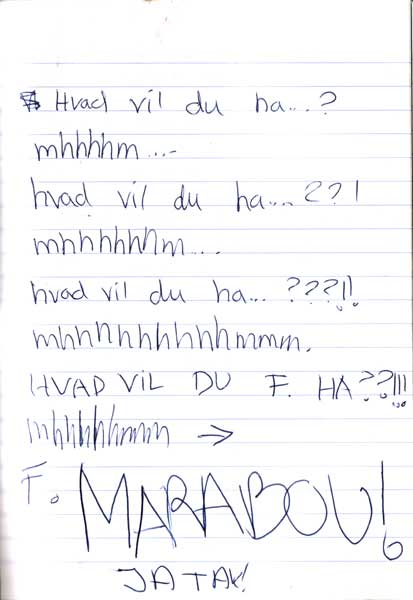 Hvad vil du ha...?
mhhhhm...-
hvad vil du ha....??!
mhhhhhhm....
hvad vil du ha... ???!!
mhhhhhhhhhhmmm.
HVAD VIL DU F. HA??!!!
mhhhhhmmm →
F. MARABOU!
JA TAK!